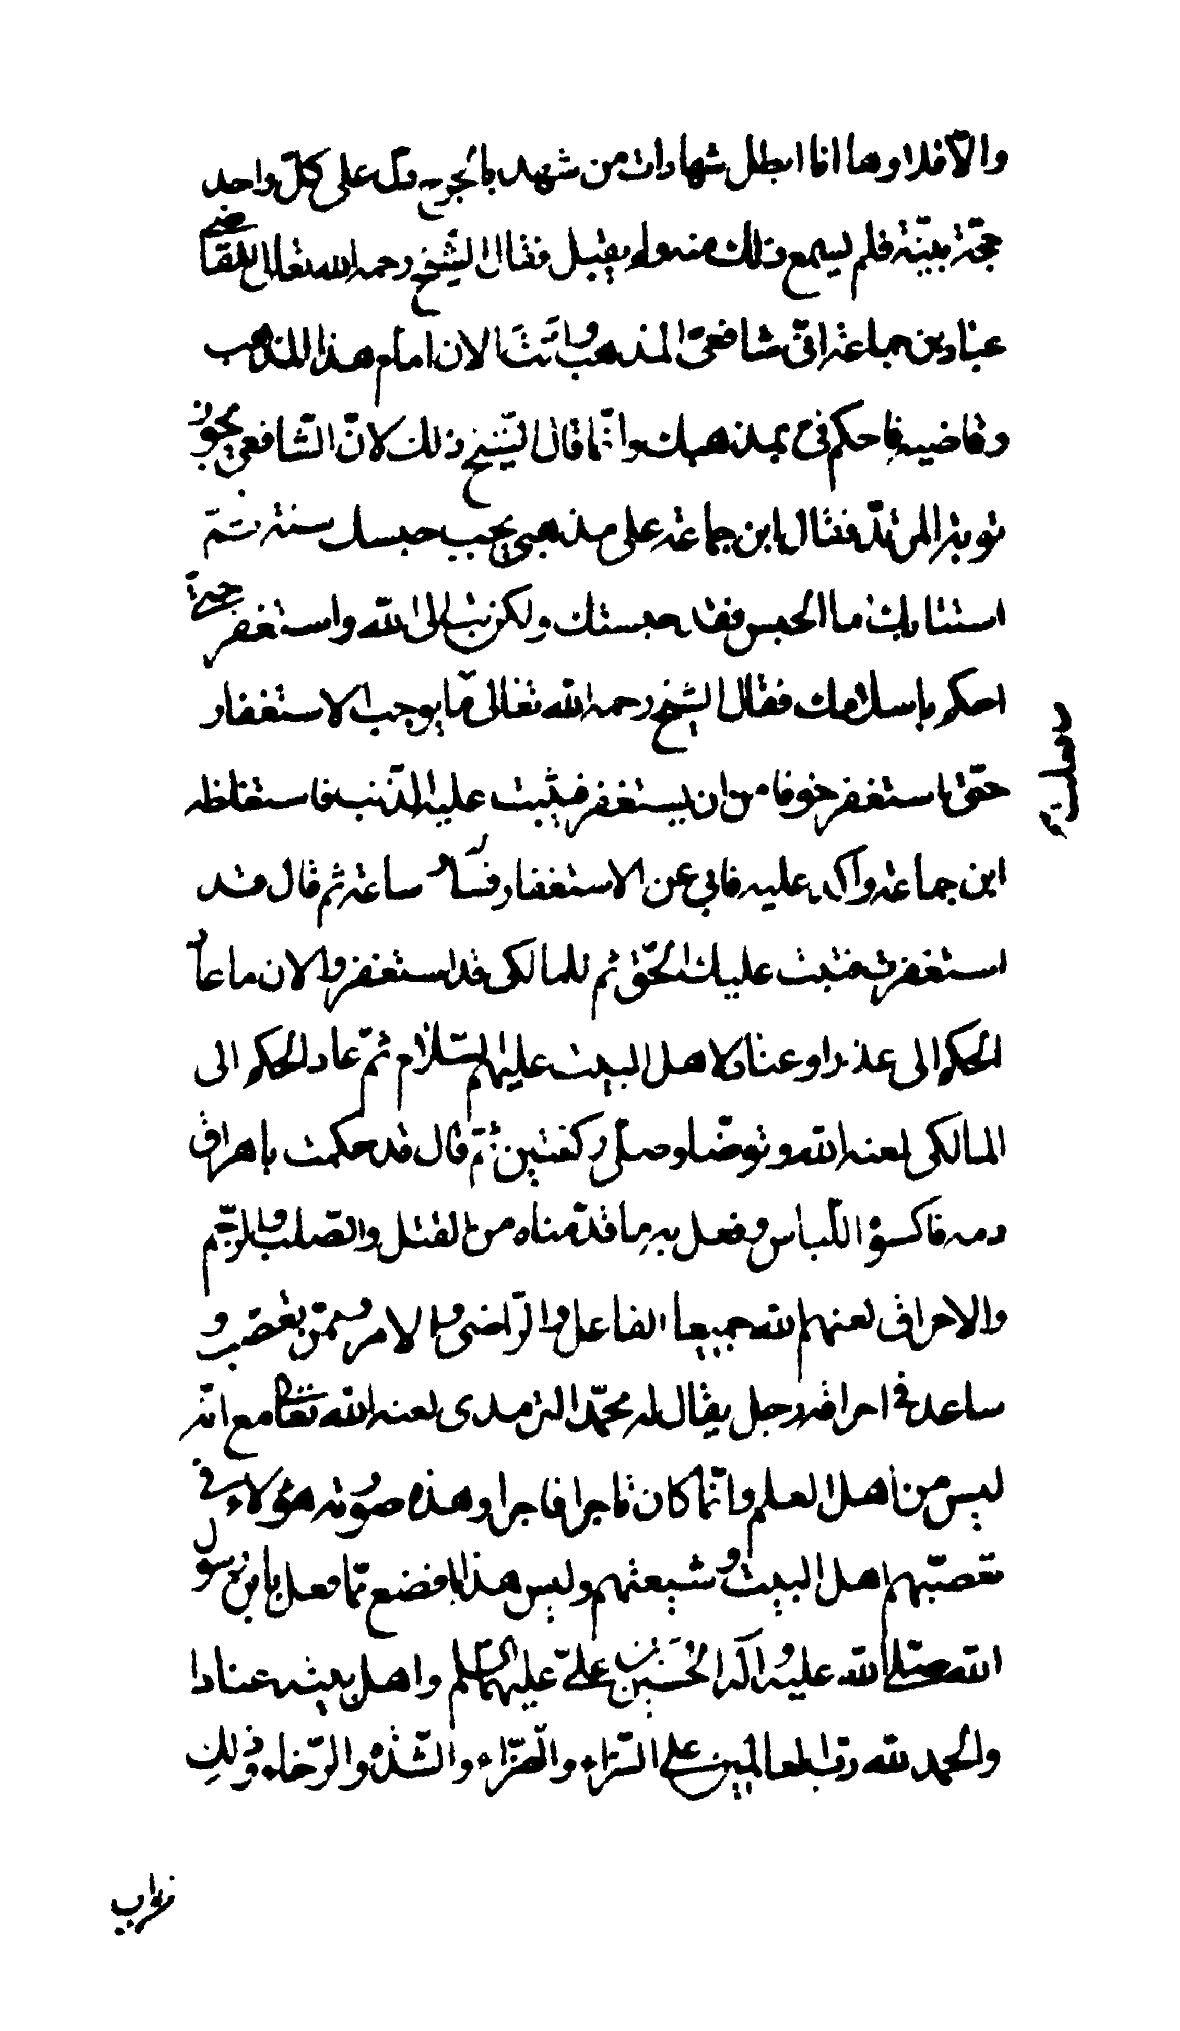 والّا فلا وها انا ابطل شهادات من شهد بالجرح وكل على كلّ واحد
حجّة بيّنة فلم يسمع ذلك منه ولم يقبل فقال الشّيخ رحمه الله تعالى للقاضي
عبّاد بن جماعة انّى شافعىّ المذهب وانت الان امام هذا المذهب
وقاضيه فاحكم فىّ بمذهبك وانّما قال الشّيخ ذلك لانّ الشّافعى يجوز
توبة المرتدّ فقال ابن جماعة على مذهبى يجب حبسك سنة ثمّ
استتابك اما الحبس فقد حبستك ولكن تب الى الله واستغفر حتّى
احكم باسلامك فقال الشّيخ رحمه الله تعالى ما يوجب الاستغفار
حتّى استغفر خوفا من ان يستغفر فيثبت عليه الذّنب فاستغلظه
ابن جماعة واكد عليه فابى عن الاستغفار فسارّه ساعة ثم قال قد
استغفر فثبت عليك الحقّ ثم للمالكى قد استغفر والان ما عاد
الحكم الى عذرا وعنادا لاهل البيت عليهم السّلام ثمّ عاد الحكم الى
المالكى لعنه الله وتوضّا وصلّى ركعتين ثمّ قال قد حكمت باهراق
دمه فاكسوه اللّباس وفعل به ما قدّمناه من القتل والصّلب والرّجم
والاحراق لعنهم الله جميعا الفاعل والرّاضى والامر وممّن تعصّب و
ساعد فى احراقه رجل يقال له محمّد الترمدى لعنه الله تعالى مع انّه
ليس من اهل العلم وانّما كان تاجرا فاجرا وهذه صورة هؤلاء فى
تعصّبهم اهل البيت وشيعتهم وليس هذا بافضع ممّا فعل بابن رسول
الله صلّى الله عليه واله الحسين بن علىّ عليهم السّلم واهل بيته عنادا
والحمد لله ربّ العالمين على السّرّاء والضّرّاء والشّدّة والرّخاء وذلك